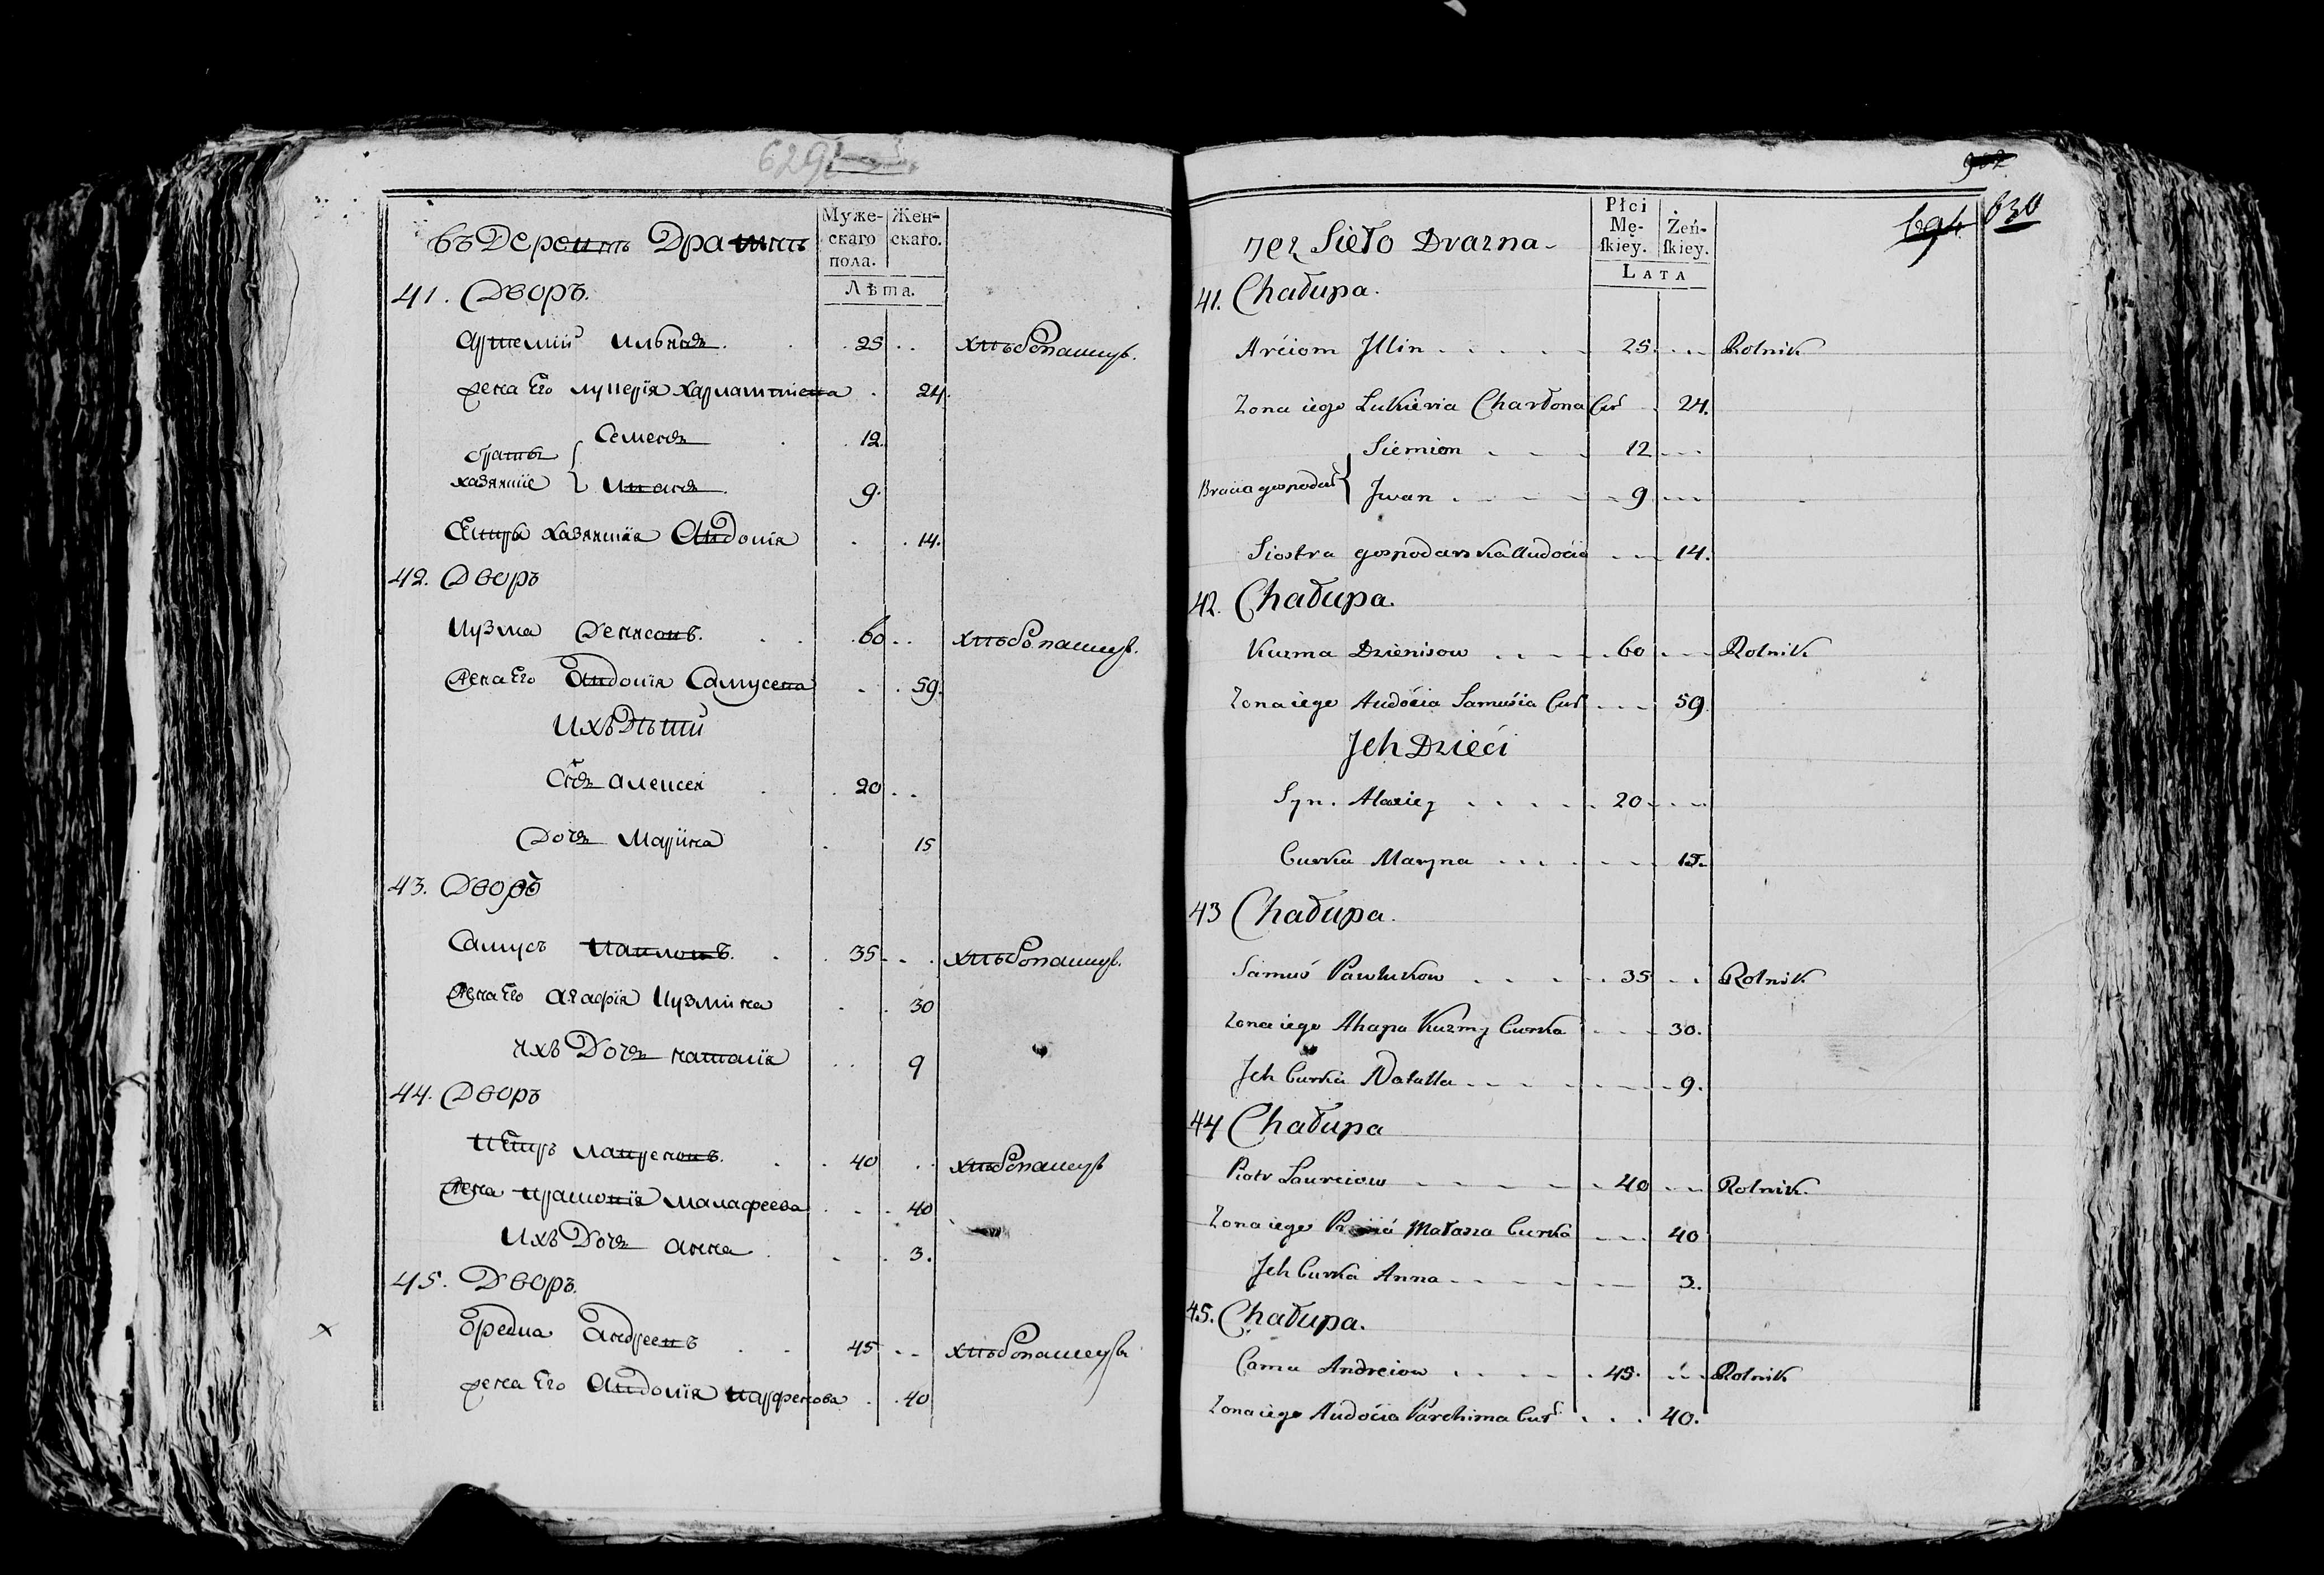 629
въ Деревнѣ Дражнѣ
Муже-
скаго
пола.
Жен-
скаго.
Лѣта.
41. Дворъ.
Артемій Ильинъ. 25 хлѣбопашецъ.
жена Его лукерія харлампіева 24.
братья хазяиніе
Семенъ 12.
Иванъ 9.
Сестра хазяинія Авдотія 14.
42. Дворъ
Кузма Денисовъ. 60 хлѣбопашецъ.
жена Его Авдотія Самусева 59.
Ихъ Дѣти
Снъ алексеи 20
Дочь Марина 15
43. Дворъ
Самусъ Павловъ. 35 хлѣбопашецъ.
жена Его агафія Кузмина 30
ихъ Дочь наталія 9
44. Дворъ
Петръ лавреновъ. 40 хлѣбопашецъ
Жена малафеева 40
Ихъ Дочь анна 3.
45. Дворъ.
Ерема Андреевъ 45 хлѣбопашецъ
жена Его Авдотія парфенова 40
902
694 630
Sieło Drazna
Płci
Mę-
ſkiey.
Żeń-
ſkiey.
LATA
41. Chałupa.
Arciom Illin 25 Rolnik
Zona iego Lukieria Charłona Cur 24.
Bracia gospodar
Siemion 12
Iwan 9
Siostra gospodarska Audocia 14.
42. Chałupa.
Kuzma Dzienisow 60 Rolnik
Zona iego Audocia Samusia Cur 59
Jch Dzieći
Syn. Alaxiey 20
Curka Maryna 15.
43 Chałupa.
Samuś Pawlukow 35 Rolnik
Zona iego Ahapa Kuzmy Curka 30.
Jch Curka Natalla 9.
44 Chałupa
Piotr Laureiow 40 Rolnik.
Zona iego Małasza Curka 40
Jch Curka Anna 3.
45. Chałupa.
Andreiow 45. Rolnik
Zona iego Audocia Parchima Cur 40.